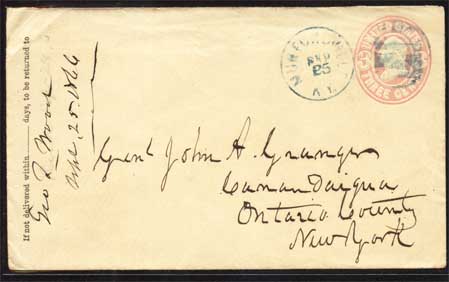 If not delivered within days, to be returned to
Geo R Wood
Sept. 25. 1866
25
N.Y.
UNITED STATES
THREE CENTS
Genl John A. Granger
Canandaigua
Ontario County
New York